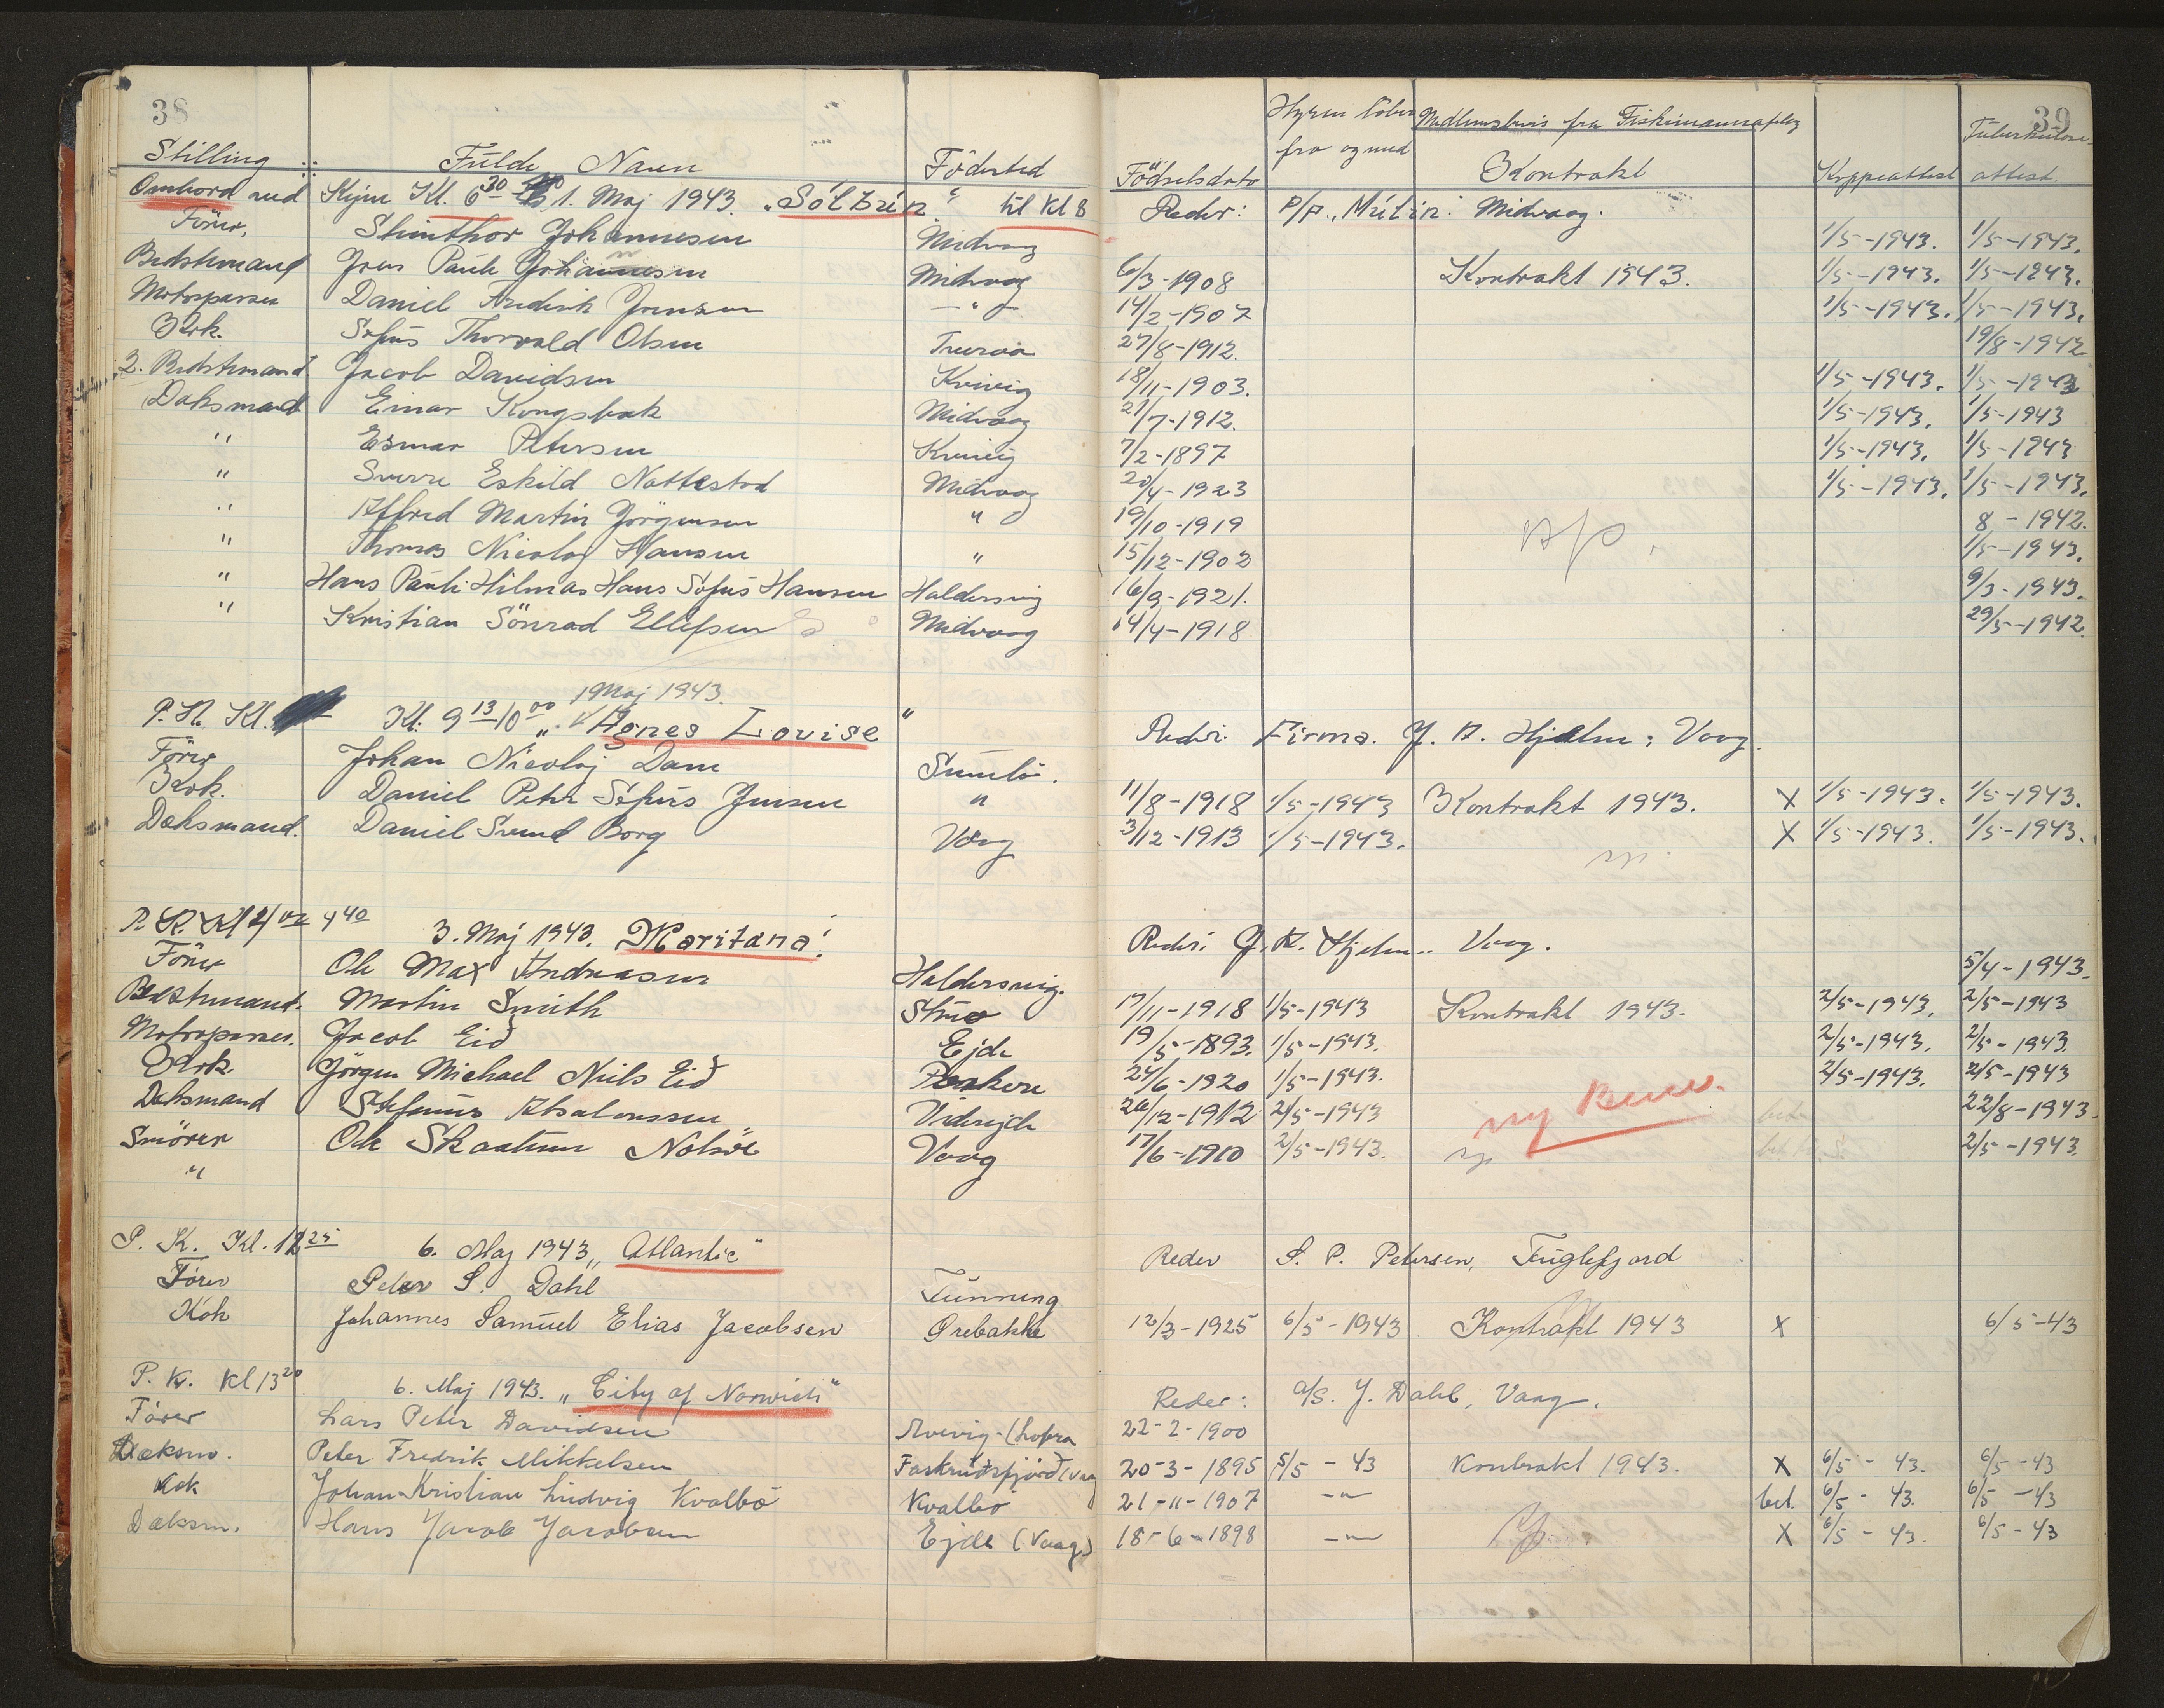 38
39
Stilling Fulde Navn Födested Födselsdato Hyren löber fra og med Medlemsbevis fra Fiskimannafelag Kontrakt Koppeattest Tuberkulose attest.
Ombord ved Skjm Kl. 6 30 1. Maj 1943. "Sólbrún" til kl 8 Reder: P/P. "Múlin" Midvaag.
Förer, Steinthor Johannesen Midvaag 1/5-1943. 1/5-1943.
Bedstemand Jens Pauli Johannesen Midvaag 6/3-1908 Kontrakt 1943. 1/5-1943. 1/5-1943.
Motorpasser Daniel Fredrik Joensen -"- 14/2-1907 1/5-1943. 1/5-1943.
Kok. Sofus Thorvald Olsen 27/8-1912. 19/8-1942
2. Bedstemand Jacob Davidsen Kvivig 18/11-1903. 1/5-1943. 1/5-1943
Dæksmand Einar Kongsbak Midvaag 21/7-1912. 1/5-1943. 1/5-1943
" Esmar Petersen Kvivig 7/2-1897 1/5-1943. 1/5-1943
" Sverre Eskild Nattestad Midvaag 20/4-1923 1/5-1943. 1/5-1943.
" Alfred Martin Jörgensen " 19/10-1919 8-1942.
" Thomas Nicolaj Hansen " 15/12-1902 1/5-1943.
" Hans Pauli Hilmar Hans Sofus Hansen Haldersvig 16/9-1921. 9/3-1943.
" Kristian Sönrad Ellefsen Midvaag 14/4-1918 29/5-1942.
1 Maj 1943.
P. K. Kl. Kl. 9 13/10 00 "Agnes Lovise" Reder: Firma. J. K. Hjelm: Vaag.
Förer Johan Nicolaj Dam Sumbö.
Kok. Daniel Peter Sofus Jensen " 11/8-1918 1/5-1943 Kontrakt 1943. X 1/5-1943. 1/5-1943.
Dæksmand. Daniel Svend Borg Vaag 3/12-1913 1/5-1943. X 1/5-1943. 1/5-1943.
P. K. Kl 4 40 3. Maj 1943. "Maritana". Reder: J. K. Hjelm. Vaag.
Förer Ole Max Andreasen Haldersvig. 5/4-1943.
Bestemand. Martin Smith 17/11-1918 1/5-1943 Kontrakt 1943. 2/5-1943. 2/5-1943
Motorpasser. Jacob Eið Ejde 19/5-1893. 1/5-1943. 2/5-1943. 2/5-1943.
Kok Jörgen Michael Niels Eið Porkere 24/6-1920 1/5-1943. 2/5-1943. 2/5-1943
Dæksmand Stefanus Absalonssen Viderejde 26/12-1912 2/5-1943 ny 22/8-1943.
Smörer Ole Skaalum Nolsöe Vaag 17/6-1910 2/5-1943. 2/5-1943.
"
P. K. Kl. 12 25 6. Maj 1943 "Atlantic" Reder S. P. Petersen, Fuglefjord
Förer Peter S. Dahl Funning
Kok Johannes Samuel Elias Jacobsen Ørebakke 12/3-1925 6/5-1943 Kontrakt 1943 X 6/5-43
P. K. kl 13 20 6. Maj 1943. "City of Norwich" Reder: A/S. J. Dahl, Vaag.
Förer Lars Peter Davidsen 22-2-1900
Dæksm. Peter Fredrik Mikkelsen Faskrudsfjörd (Vaag 20-3-1895 5/5-43 Kontrakt 1943. X 6/5-43. 6/5-43
Kok Johan Kristian Ludvig Kvalbö Kvalbö 21-11-1907 -"- bet. 6/5-43. 6/5-43
Dæksm. Hans Jacob Jacobsen Ejde (Vaag) 18-6-1898 -"- X 6/5-43. 6/5-43